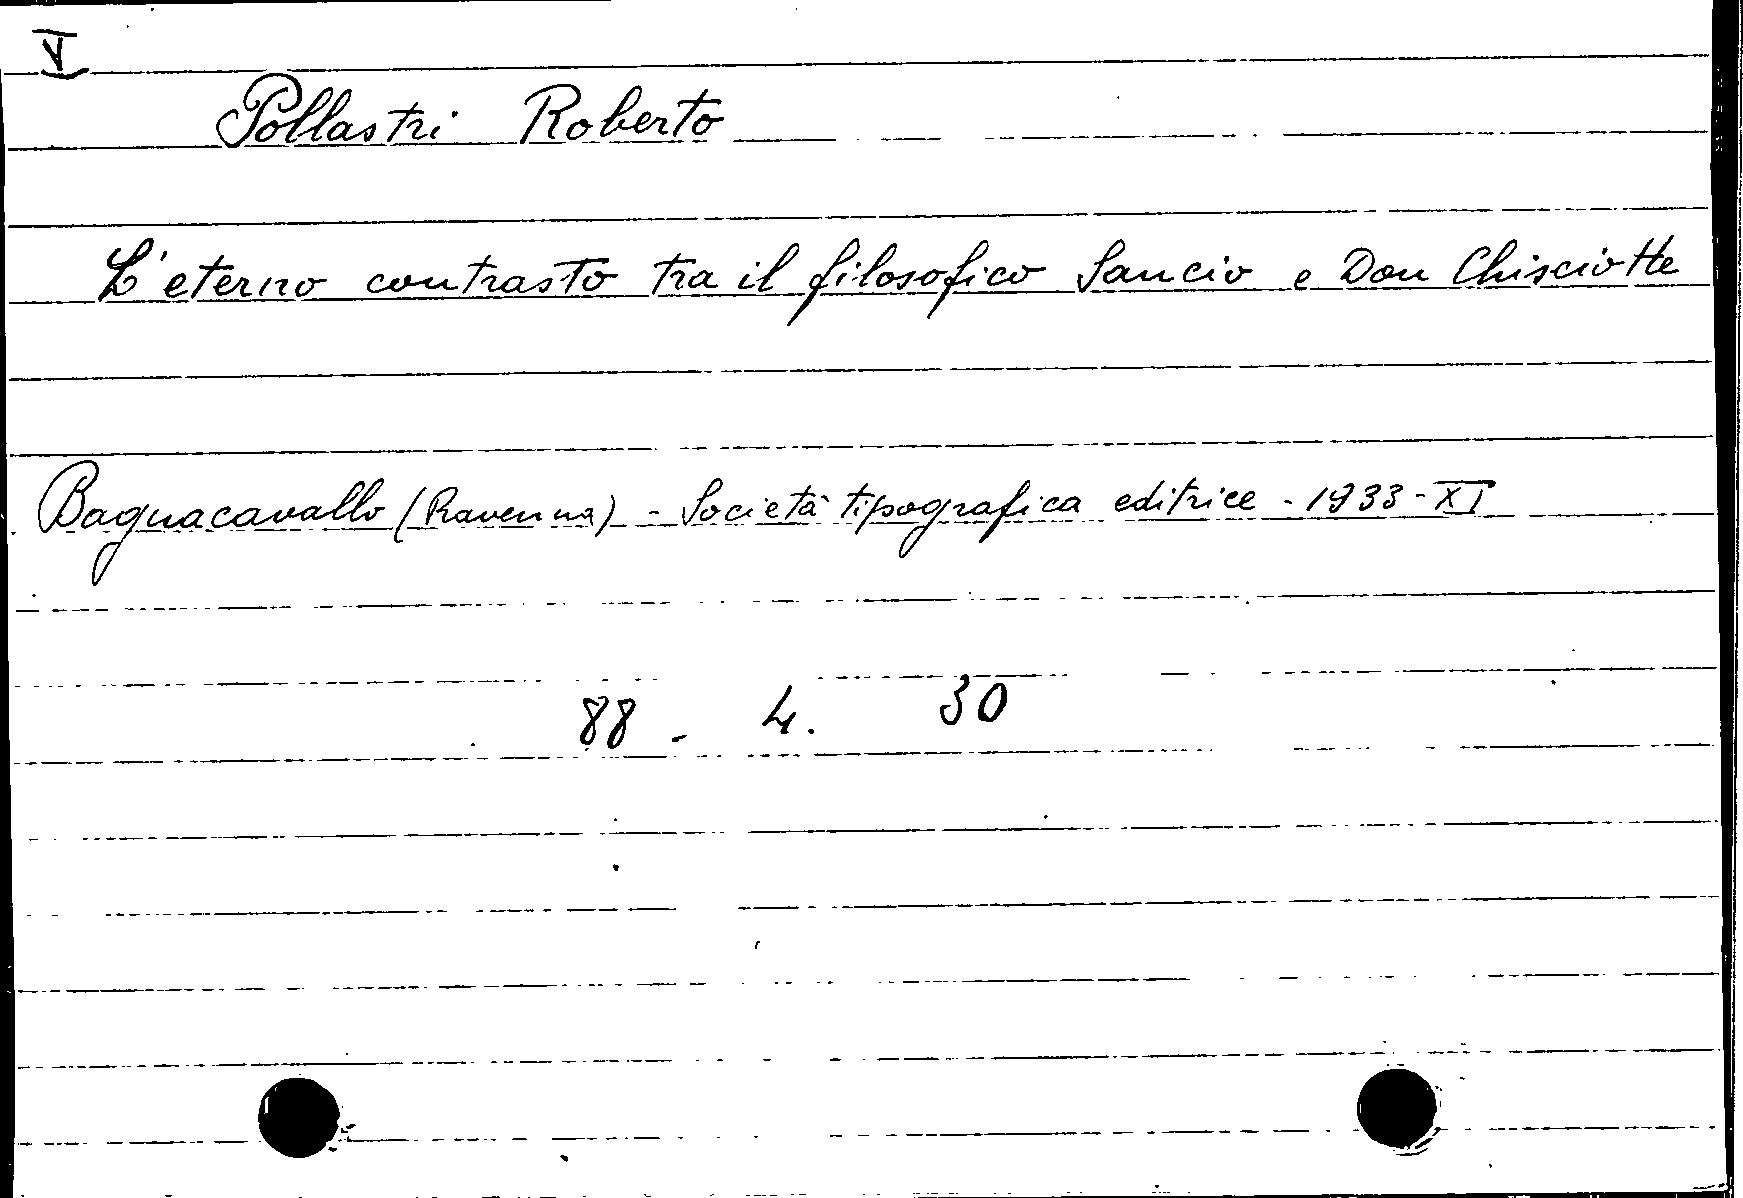 V
Pollastri Roberto
L'eterno contrasto tra il filosofico Sancio e Don Chisciotte
Bagnacavallo (Ravenna) - Società tipografica editrice - 1933 - XI
88 - 4. 30